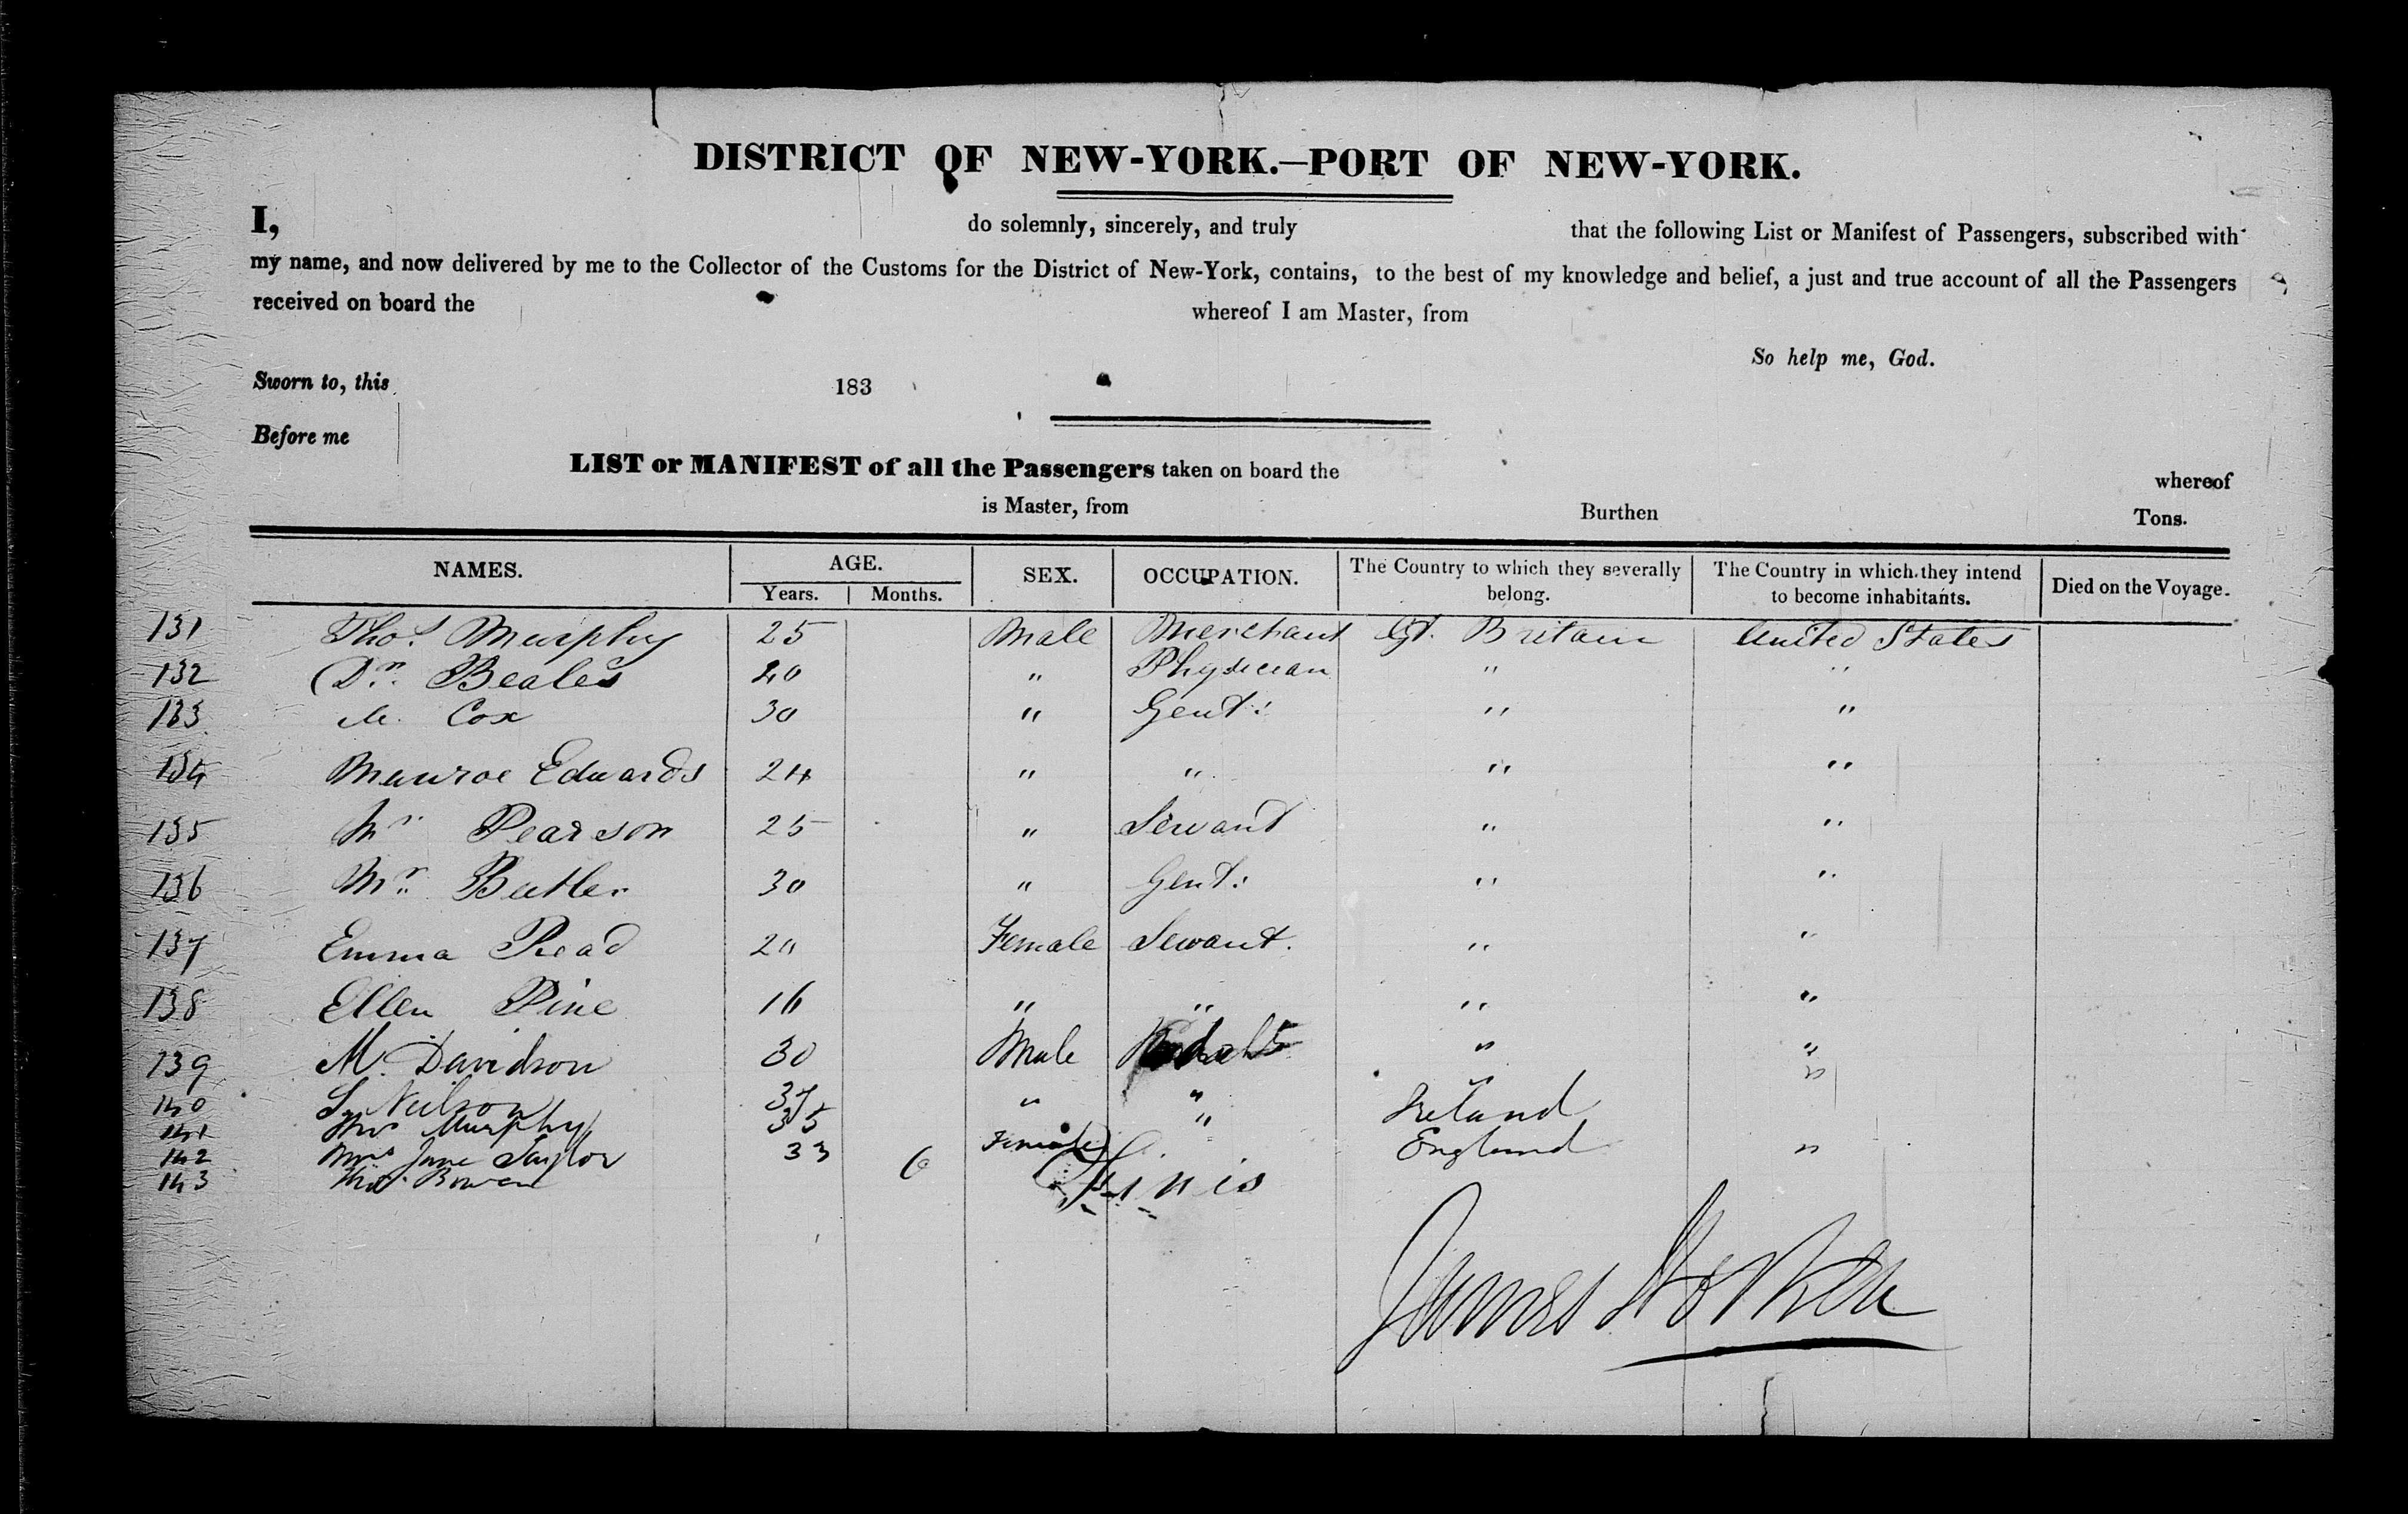 DISTRICT OF NEW-YORK.—PORT OF NEW-YORK.
I, do solemnly, sincerely, and truly that the following List or Manifest of Passengers, subscribed with
my name, and now delivered by me to the Collector of the Customs for the District of New-York, contains, to the best of my knowledge and belief, a just and true account of all the Passengers
received on board the whereof I am Master, from
So help me, God.
Sworn to, this 183
Before me
LIST or MANIFEST of all the Passengers taken on board the whereof
is Master, from Burthen Tons.
NAMES. AGE. SEX. OCCUPATION. The Country to which they severally belong. The Country in which they intend to become inhabitants. Died on the Voyage.
Years. Months.
131 Thos. Murphy 25 Male Merchant Gt. Britain United States
132 Dr. Beales 40 " Physician " "
133 Cox 30 " Gent: " "
134 Munroe Edwards 24 " " " "
135 Mr Pearson 25 " Servant " "
136 Mr. Butler 30 " Gent: " "
137 Emma Read 20 Female Servant. " "
138 Ellen Pine 16 " " " "
139 M. Davidson 30 Male " "
140 S. Neilson 37 " " " "
141 Murphy 35 " Ireland
142 Mrs Jane Taylor 33 Female England "
143 Thos. Bowen 6
Finis
James